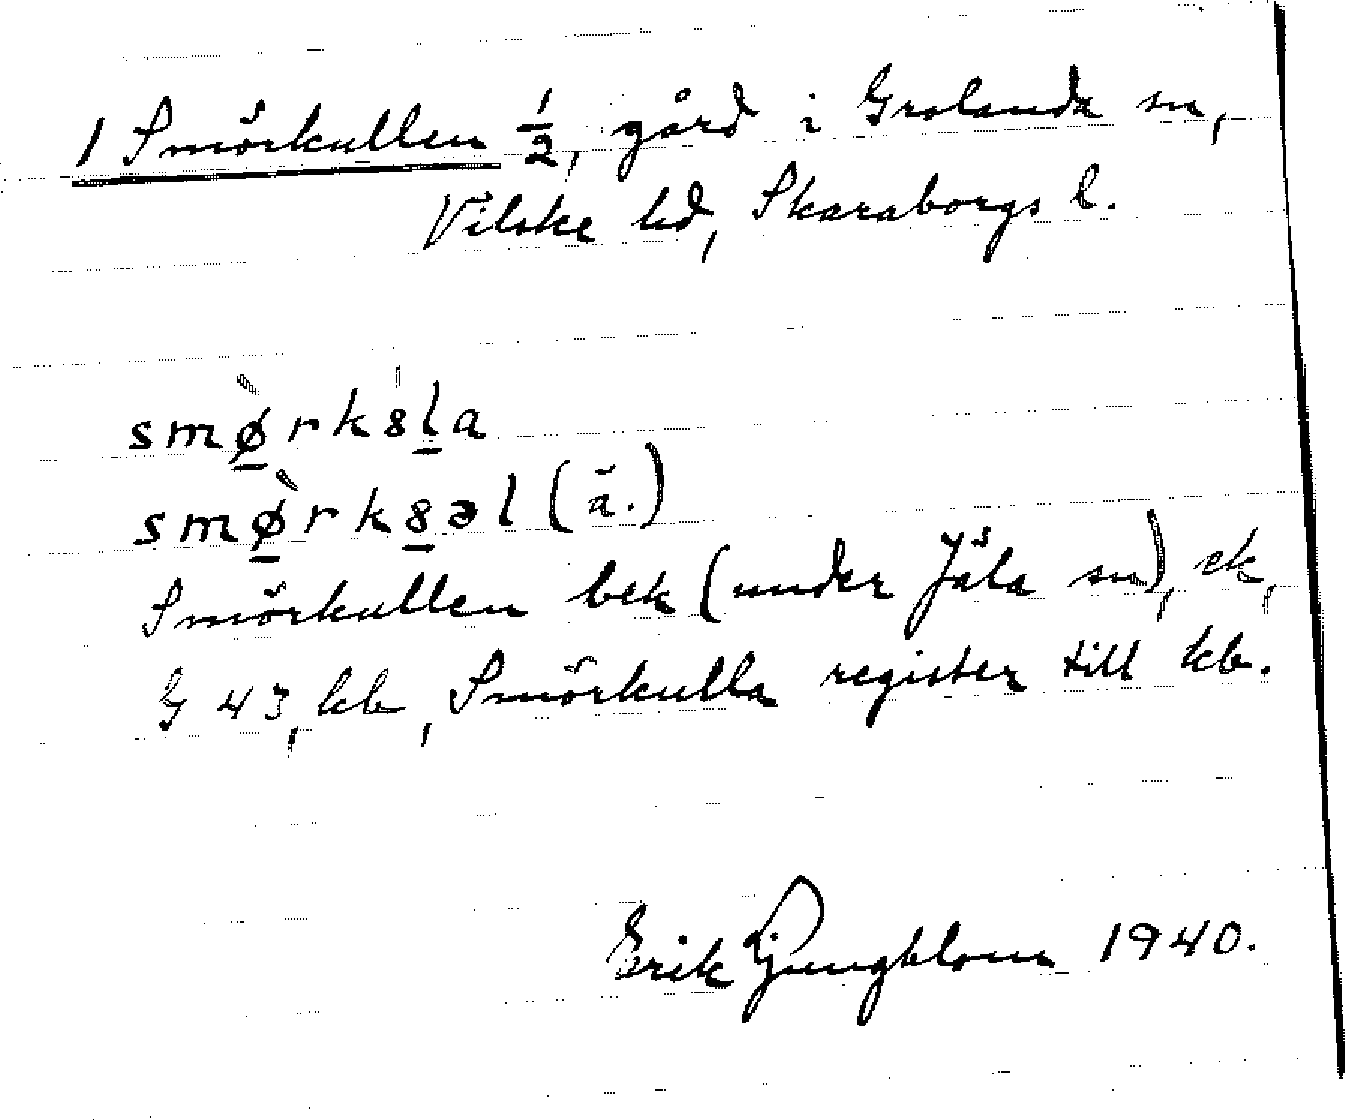 1 Smörkullen 1/2, gård i Grolanda sn,
Vilske hd, Skaraborgs l.
smø̀rk8la
smø̀rk8əl (ä.)
Smörkullen bek (under Jäla sn), ek,
G 43, kb, Smörkulla register till kb.
Erik Ljungblom 1940.